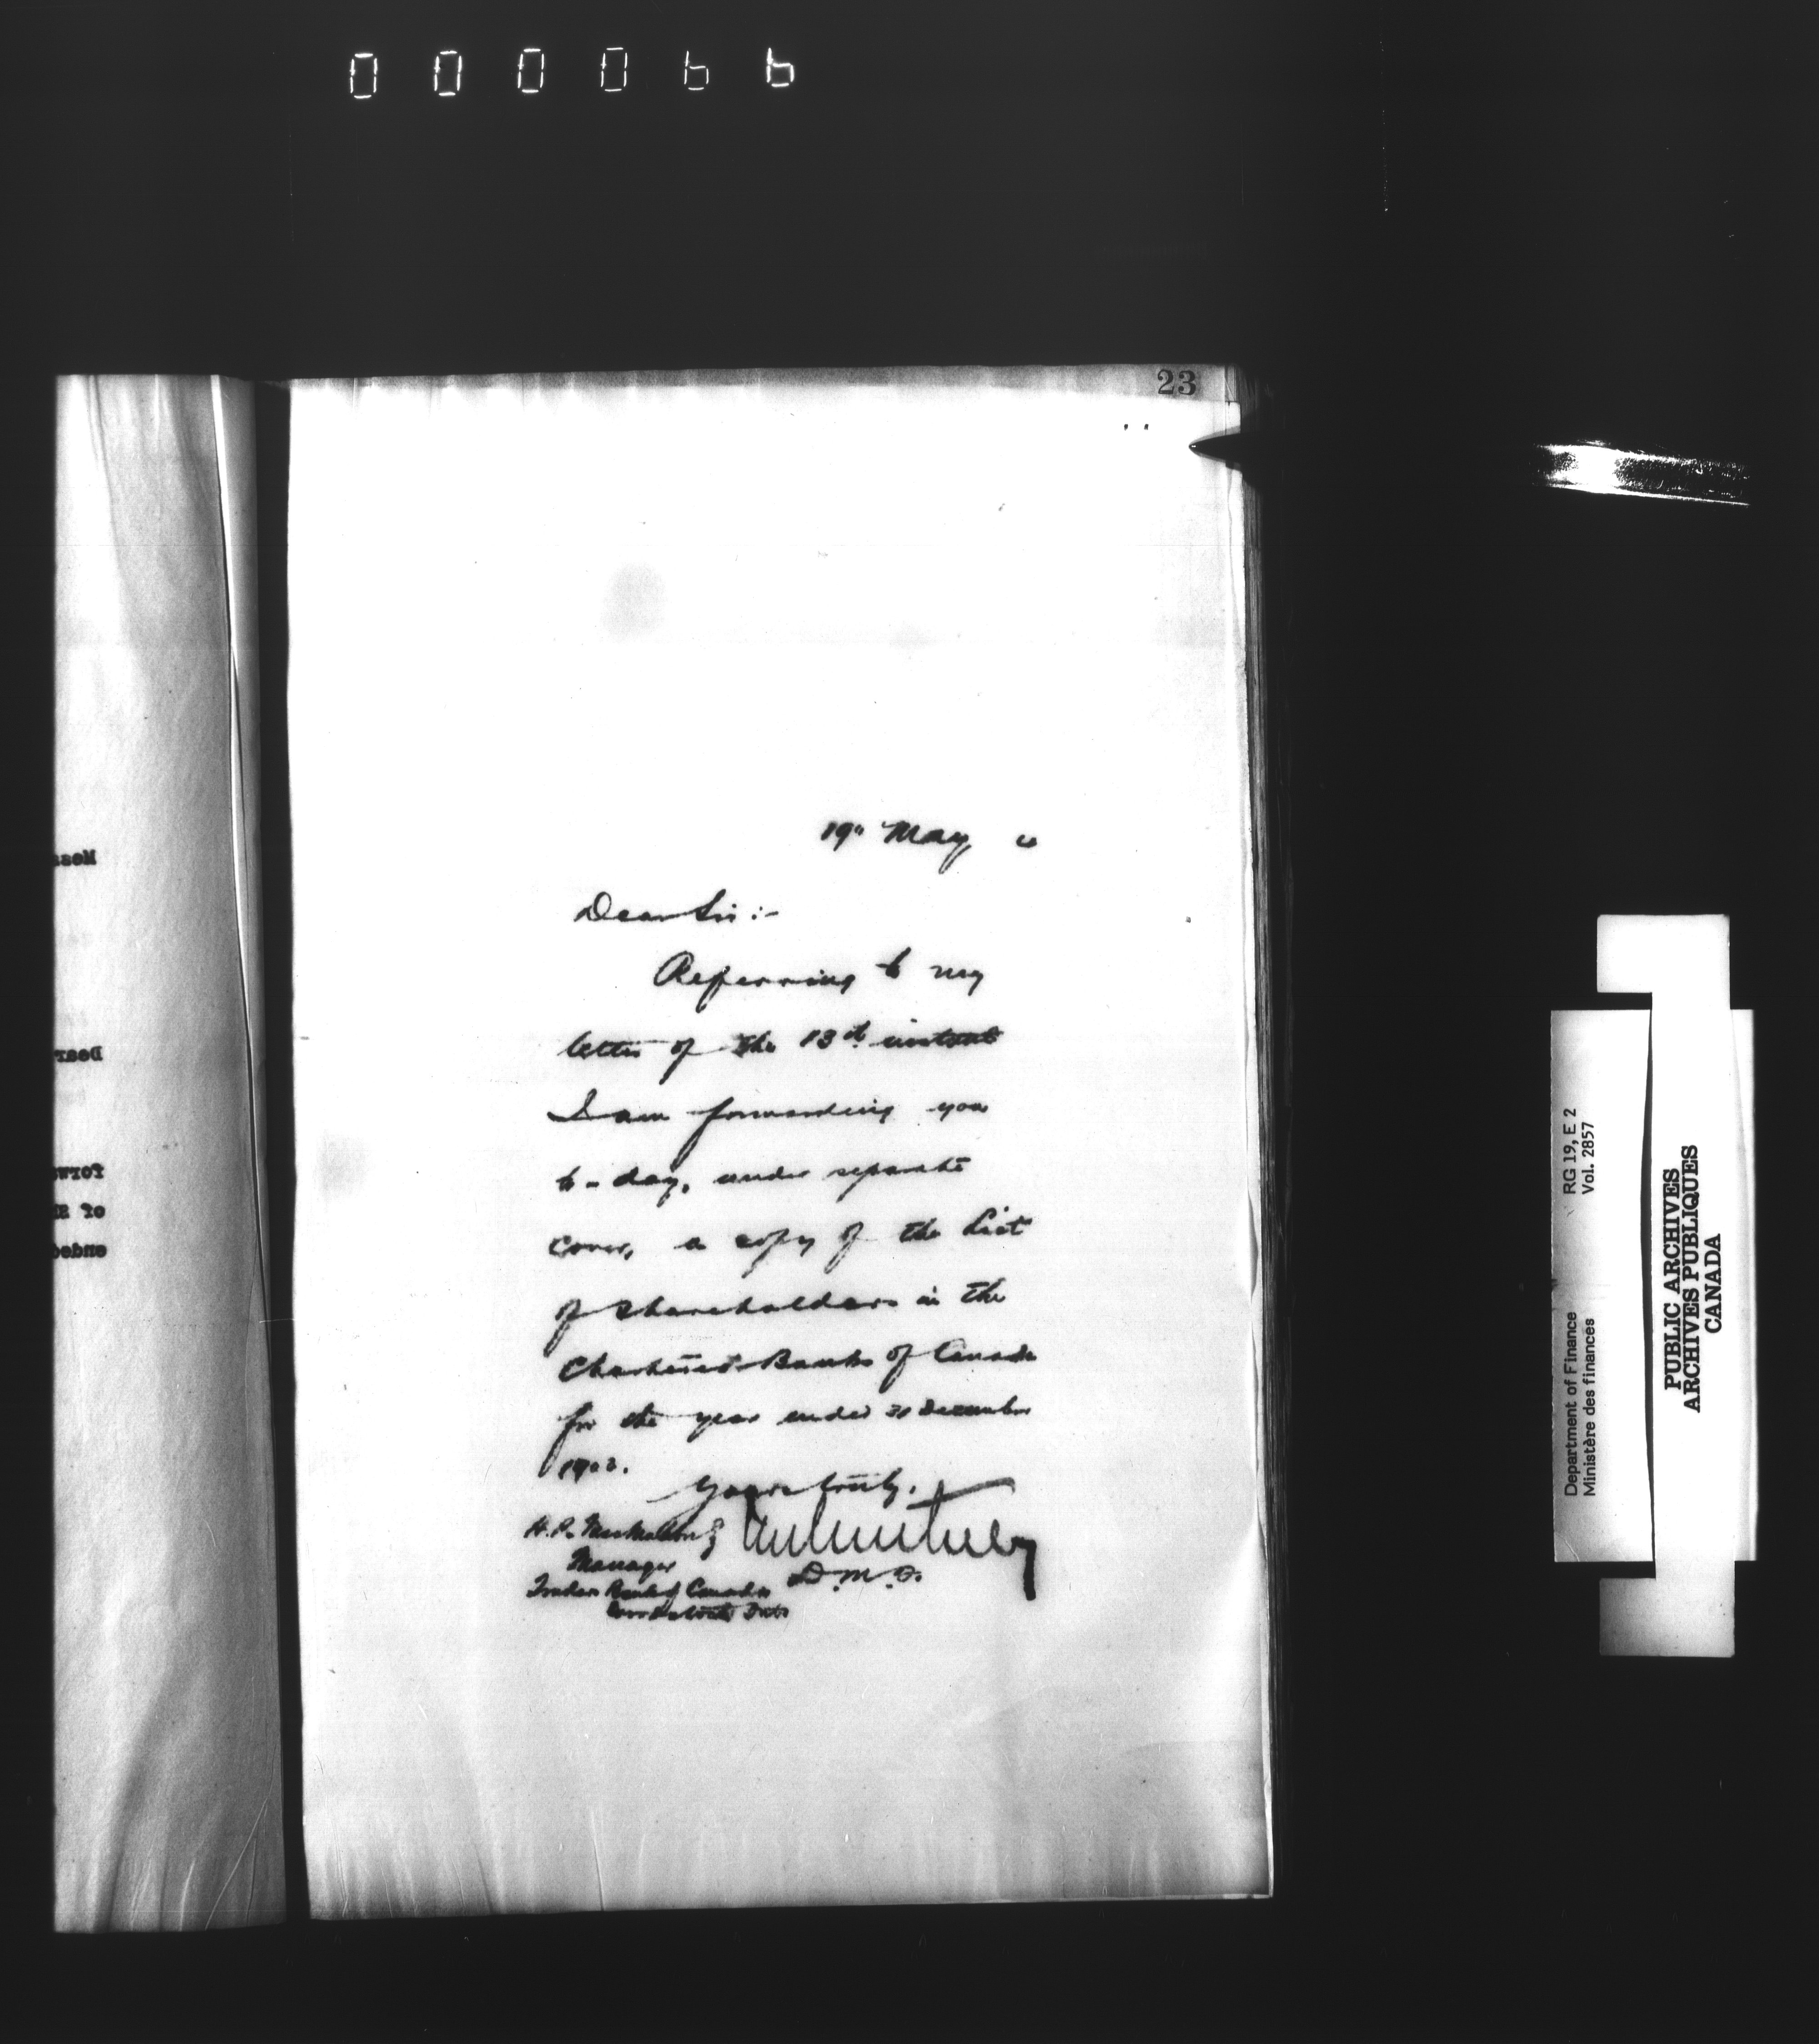 000066
23
19" May
Dear Sir :-
Referring to my
letter of the 13th instant
I am forwarding you
to-day, under separate
cover, a copy of the List
of Shareholders in the
Chartered Banks of Canada
for the year ended 31 December
1902.
Yours truly,
H.P.
Manager
D.M.F.
Traders Bank of Canada
Ont
Mess
Dear
forw
of Sh
ended
RG 19, E 2
Vol. 2857
Department of Finance
Ministère des finances
PUBLIC ARCHIVES
ARCHIVES PUBLIQUES
CANADA